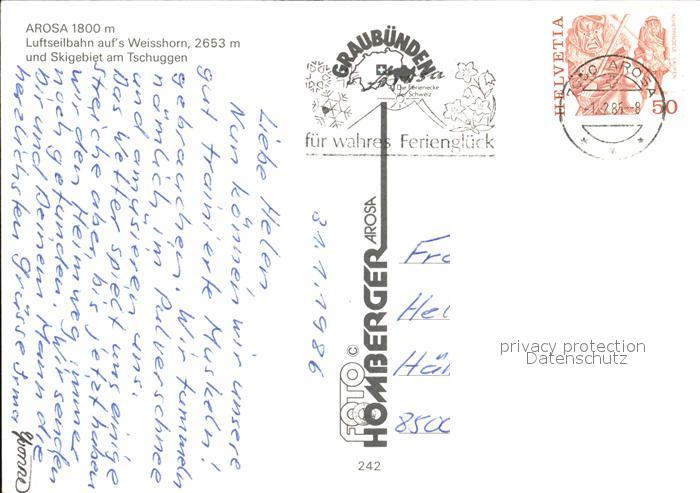 AROSA 1800 m
Luftseilbahn auf's Weisshorn, 2653 m
und Skigebiet am Tschuggen
GRAUBÜNDEN
Die Ferienecke
der Schweiz
für wahres Ferienglück
HELVETIA
50
7050 AROSA
-1.-2.86-8
31.1.1986
Liebe Helen,
Nun können wir unsere
gut trainierte Muskeln
gebrauchen. Wir tummeln
nämlich im Pulverschnee
und amüsieren uns.
Das Wetter spielt uns einige
Streiche aber, bis jetzt haben
wir den Heimweg immer
noch gefunden. Wir senden
Dir und Deinem Mann die
herzlichsten Grüsse Irma
Yvonne
FOTO ©
HOMBERGER AROSA
Fra
Hel
8500
242
privacy protection
Datenschutz